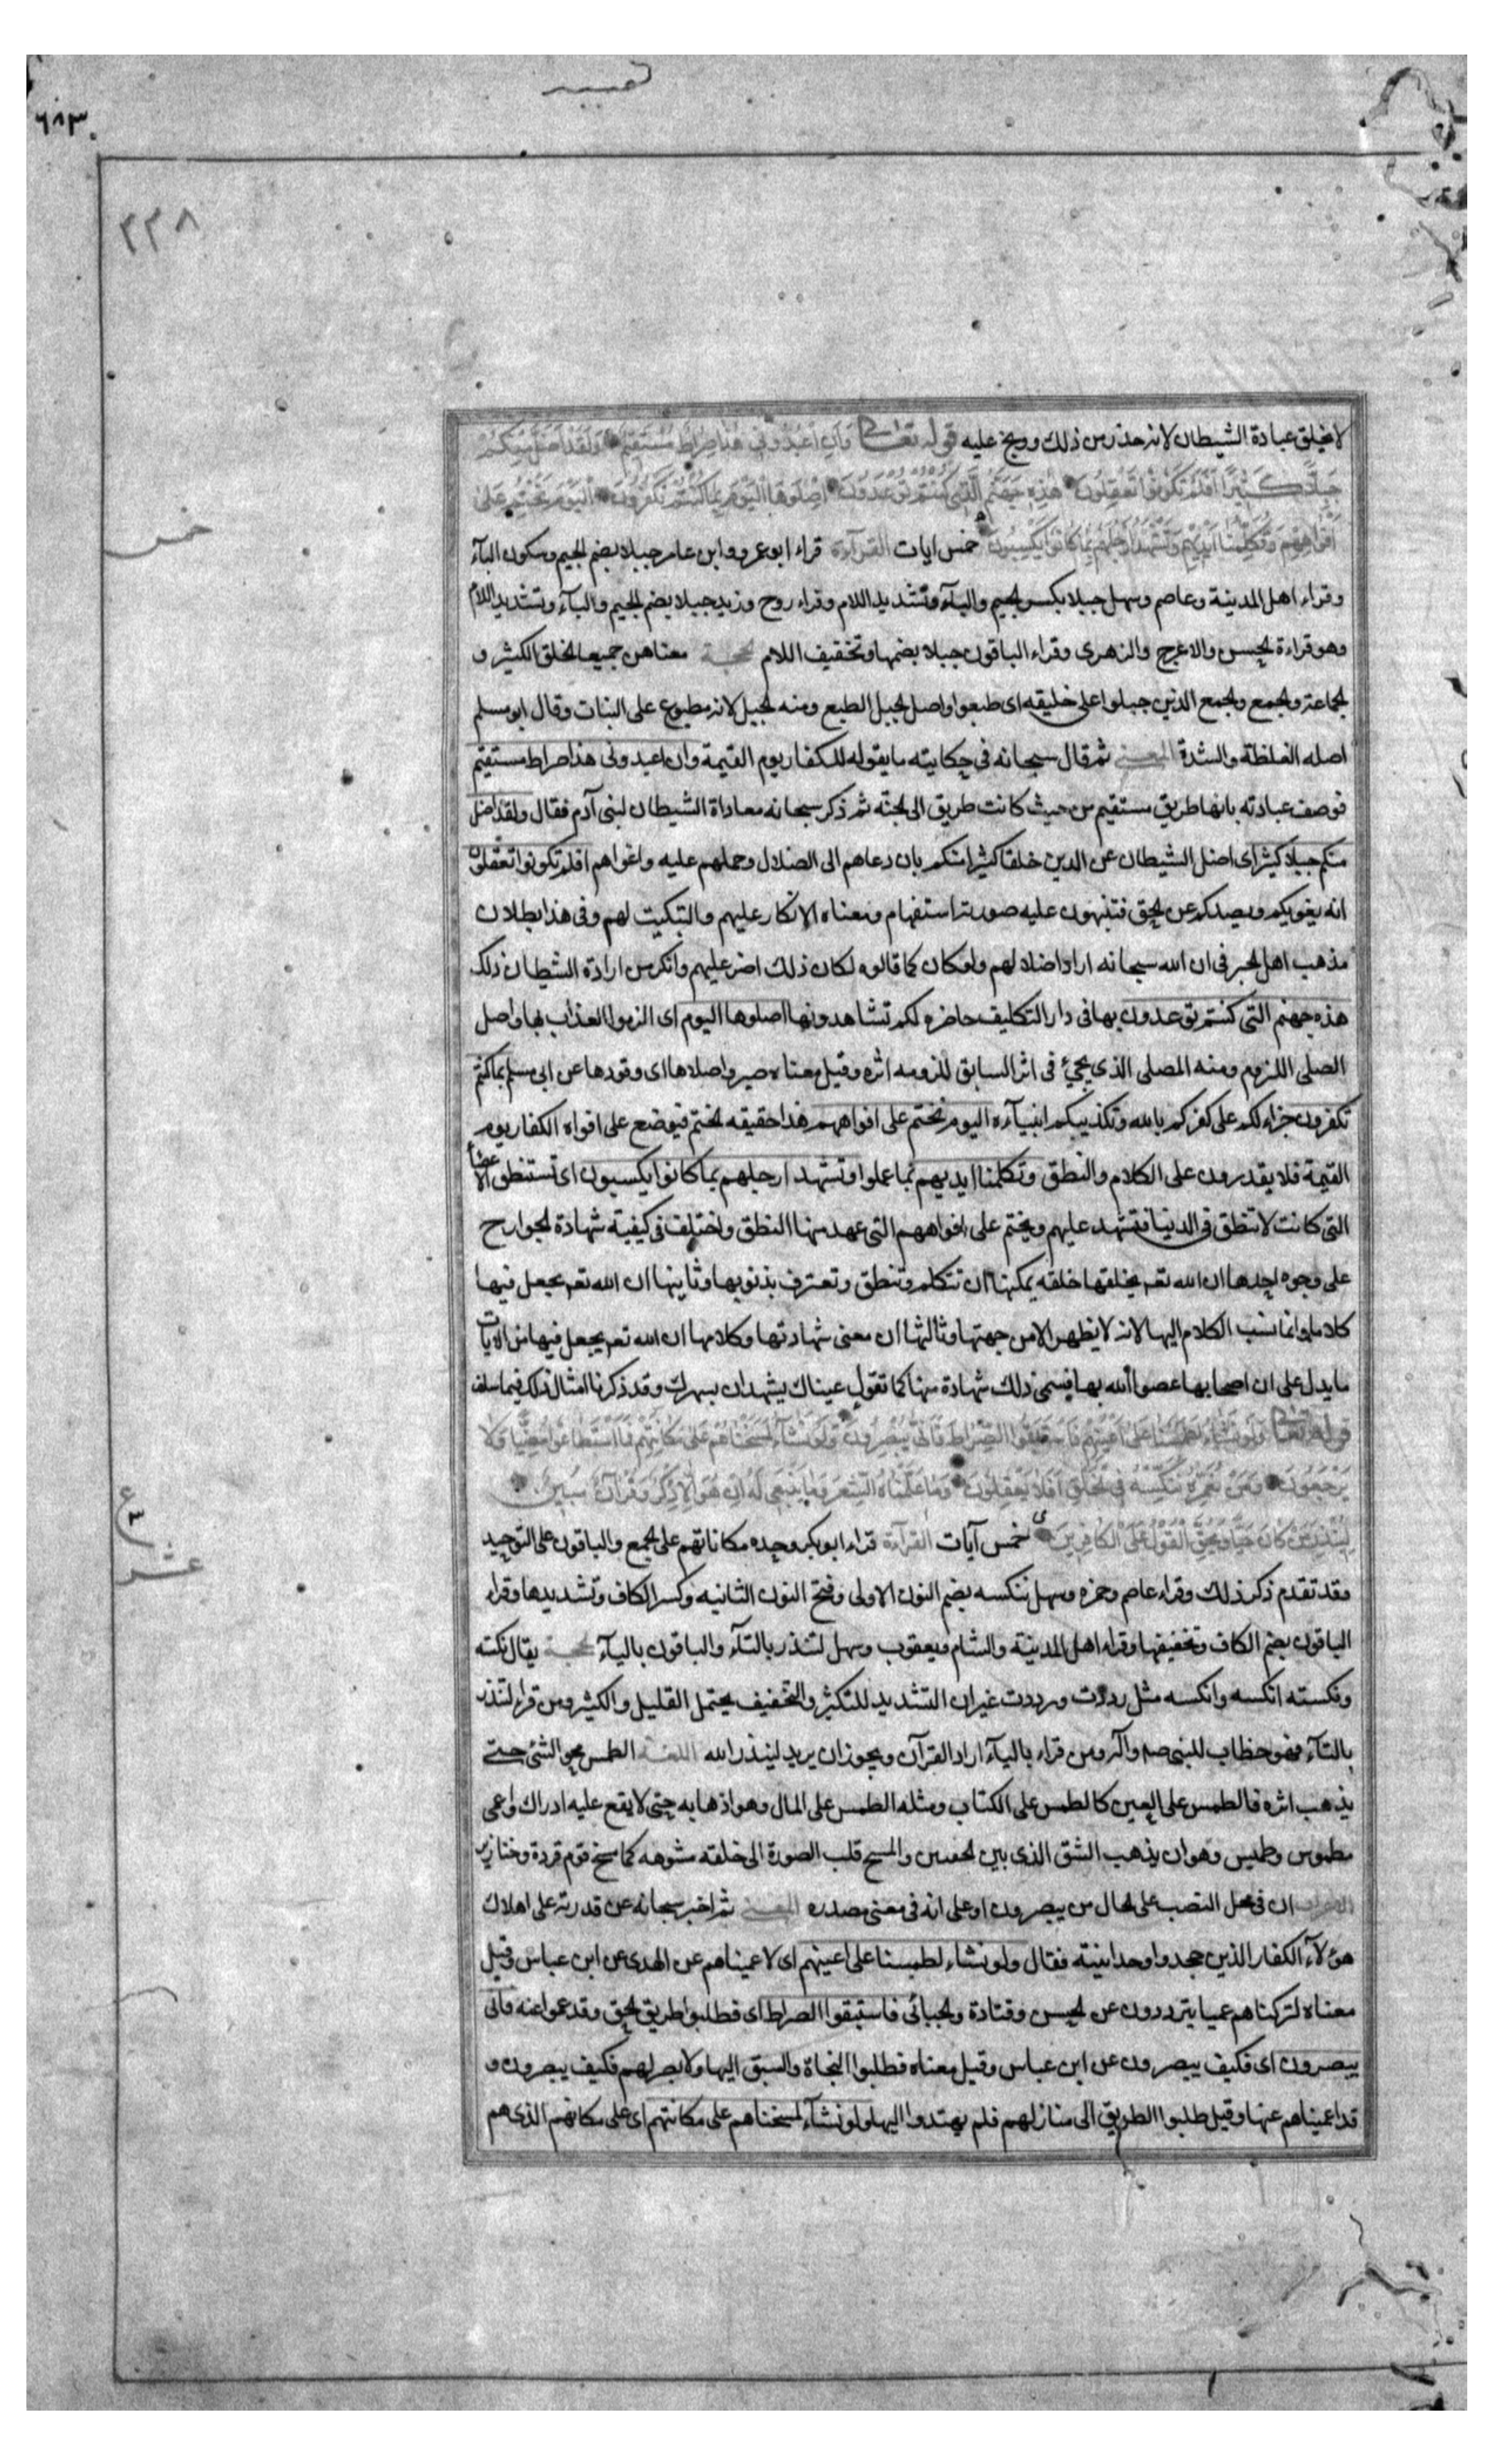 تفسير
٦٨٣
٣٣٨
لا يخلق عبادة الشيطان لانه حذر من ذلك ووبخ عليه قوله تعالى وَاَنِ اعْبُدُونِي هٰذَا صِرَاطٌ مُسْتَقِيمٌ وَلَقَدْ اَضَلَّ مِنْكُمْ
جِبِلًّا كَثِيرًا اَفَلَمْ تَكُونُوا تَعْقِلُونَ هٰذِهِ جَهَنَّمُ الَّتِي كُنْتُمْ تُوعَدُونَ اِصْلَوْهَا الْيَوْمَ بِمَا كُنْتُمْ تَكْفُرُونَ اَلْيَوْمَ نَخْتِمُ عَلَى
اَفْوَاهِهِمْ وَتُكَلِّمُنَا اَيْدِيهِمْ وَتَشْهَدُ اَرْجُلُهُمْ بِمَا كَانُوا يَكْسِبُونَ خمس ايات القراءة قراء ابو عمرو وابن عامر جبلا بضم الجيم وسكون البآء
خمس
وقراء اهل المدينة وعاصم وسهل جبلا بكسر الجيم والبآء وتشديد اللام وقراء روح وزيد جبلا بضم الجيم والبآء وتشديد اللام
وهو قراءة الحسن والاعرج والزهرى وقراء الباقون جبلا بضمها وتخفيف اللام الحجة معناهن جميعا الخلق الكثير و
الجماعة والجمع والجمع الذين جبلوا على خليقه اى طبعوا واصل الجبل الطبع ومنه الجبل لانه مطبوع على الثبات وقال ابو مسلم
اصله الغلظة والشدة المعنى ثم قال سبحانه فى حكايته ما يقوله للكفار يوم القيمة وان اعبدونى هذا صراط مستقيم
فوصف عبادته بانها طريق مستقيم من حيث كانت طريق الى الجنة ثم ذكر سبحانه معاداة الشيطان لبنى آدم فقال ولقد اضل
منكم جبلا كثيرا اى اضل الشيطان عن الدين خلقا كثيرا منكم بان دعاهم الى الضلال وحملهم عليه واغواهم افلم تكونوا تعقلون
انه يغويكم ويصدكم عن الحق فتنبهون عليه صورته استفهام ومعناه الانكار عليهم والتبكيت لهم وفى هذا بطلان
مذهب اهل الجبر فى ان الله سبحانه اراد اضلالهم ولو كان كما قالوه لكان ذلك اضر عليهم وانكر من ارادة الشيطان ذلك
هذه جهنم التى كنتم توعدون بها فى دار التكليف حاضرة لكم تشاهدونها اصلوها اليوم اى الزموا العذاب بها واصل
الصلى اللزوم ومنه المصلى الذى يجئ فى اثر السابق للزومه اثره وقيل معناه صيروا صلاها اى وقودها عن ابى مسلم بما كنتم
تكفرون جزاء لكم على كفركم بالله وتكذيبكم انبيآءه اليوم نختم على افواههم هذا حقيقه الختم فيوضع على افواه الكفار يوم
القيمة فلا يقدرون على الكلام والنطق وتكلمنا ايديهم بما عملوا وتشهد ارجلهم بما كانوا يكسبون اى تستنطق الاعضاء
التى كانت لا تنطق فى الدنيا فتشهد عليهم ويختم على افواههم التى عهد منها النطق واختلف فى كيفية شهادة الجوارح
على وجوه احدها ان الله تعـ يخلقها خلقه يمكنها ان تتكلم وتنطق وتعترف بذنوبها وثانيها ان الله تعـ يجعل فيها
كلاما وانما نسب الكلام اليها لانه لا يظهر الا من جهتها وثالثها ان معنى شهادتها وكلامها ان الله تعـ يجعل فيها من الايات
ما يدل على ان اصحابها عصوا الله بها فيسمى ذلك شهادة منها كما تقول عيناك يشهدان بسهرك وقد ذكرنا امثال ذلك فيما سلف
قوله تعالى وَلَوْ نَشَاءُ لَطَمَسْنَا عَلَى اَعْيُنِهِمْ فَاسْتَبَقُوا الصِّرَاطَ فَاَنَّى يُبْصِرُونَ وَلَوْ نَشَاءُ لَمَسَخْنَاهُمْ عَلَى مَكَانَتِهِمْ فَمَا اسْتَطَاعُوا مُضِيًّا وَلَا
يَرْجِعُونَ وَمَنْ نُعَمِّرْهُ نُنَكِّسْهُ فِي الْخَلْقِ اَفَلَا يَعْقِلُونَ وَمَا عَلَّمْنَاهُ الشِّعْرَ وَمَا يَنْبَغِي لَهُ اِنْ هُوَ اِلَّا ذِكْرٌ وَقُرْآنٌ مُبِينٌ
لِيُنْذِرَ مَنْ كَانَ حَيًّا وَيَحِقَّ الْقَوْلُ عَلَى الْكَافِرِينَ خمس آيات القراءة قراء ابو بكر وحده مكاناتهم على الجمع والباقون على التوحيد
ع
٣
عشر
وقد تقدم ذكر ذلك وقراء عاصم وحمزه وسهل ننكسه بضم النون الاولى وفتح النون الثانيه وكسر الكاف وتشديدها وقراء
الباقون بضم الكاف وتخفيفها وقراء اهل المدينة والشام ويعقوب وسهل لتنذر بالتآء والباقون باليآء الحجة يقال نكسته
ونكسته انكسه وانكسه مثل رددت ورددت غير ان التشديد للتكثير والتخفيف يحتمل القليل والكثير ومن قراء لتنذر
بالتآء فهو خطاب للنبى صم وآله ومن قراء باليآء اراد القرآن ويجوز ان يريد لينذر الله اللغة الطمس محو الشئ حتى
يذهب اثره فالطمس على العين كالطمس على الكتاب ومثله الطمس على المال وهو اذهابه حتى لا يقع عليه ادراك واعمى
مطموس وطميس وهو ان يذهب الشق الذى بين الجفنين والمسخ قلب الصورة الى خلقه مشوهه كما مسخ قوم قردة وخنازير
الاعراب ان فى محل النصب على الحال من يبصرون او على انه فى معنى مصدره المعنى ثم اخبر سبحانه عن قدرته على اهلاك
هؤلآء الكفار الذين جحدوا وحدانيته فقال ولو نشاء لطمسنا على اعينهم اى لاعميناهم عن الهدى عن ابن عباس وقيل
معناه لتركناهم عميا يترددون عن الحسن وقتادة والجبائى فاستبقوا الصراط اى فطلبوا طريق الحق وقد عموا عنه فانى
يبصرون اى فكيف يبصرون عن ابن عباس وقيل معناه فطلبوا النجاة والسبق اليها ولا بصر لهم فكيف يبصرون و
قد اعميناهم عنها وقيل طلبوا الطريق الى منازلهم فلم يهتدوا اليها ولو نشآء لمسخناهم على مكانتهم اى على مكانهم الذى هم